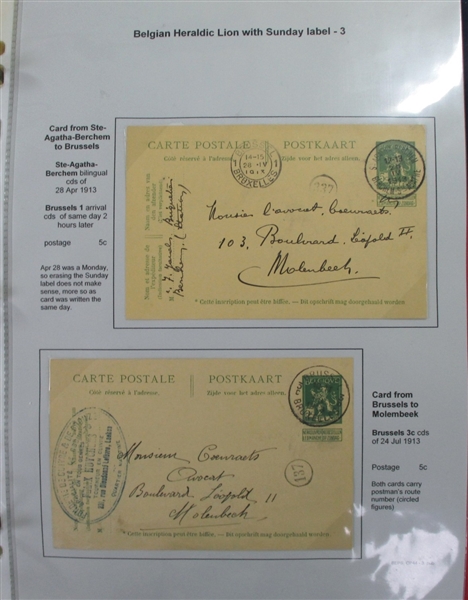 Belgian Heraldic Lion with Sunday label - 3
Card from Ste-
Agatha-Berchem
to Brussels
Ste-Agatha-
Berchem bilingual
cds of
28 Apr 1913
Brussels 1 arrival
cds of same day 2
hours later
postage 5c
Apr 28 was a Monday,
so erasing the Sunday
label does not make
sense, more so as
card was written the
same day.
CARTE POSTALE POSTKAART
Côté réservé à l'adresse. Zijde voor het adres alleen.
1 14-15 1
28 -IV
1913
BRUXELLES
187
Monsieur l'avocat Coenraets,
103, Boulevard Léopold II,
Molenbeek.
* Cette inscription peut être biffée. — Dit opschrift mag doorgehaald worden
CARTE POSTALE POSTKAART
Côté réservé à l'adresse. Zijde voor het adres alleen.
187
Monsieur Coenraets
Avocat
Boulevard Léopold II
Molenbeek
*Cette inscription peut être biffée. — Dit opschrift mag doorgehaald worden
Card from
Brussels to
Molembeek
Brussels 3c cds
of 24 Jul 1913
Postage 5c
Both cards carry
postman's route
number (circled
figures)